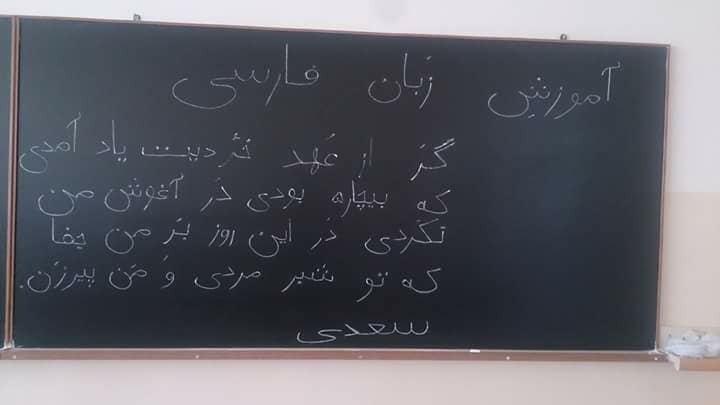 آموزش زَبان فارسی
گَر از عَهد خُردیت یاد آمدی
که بیچاره بودی دَر آغوش من
نکردی دَر این روز بَر من جفا
که تو شیر مردی وَ مَن پیرزَن.
سعدی